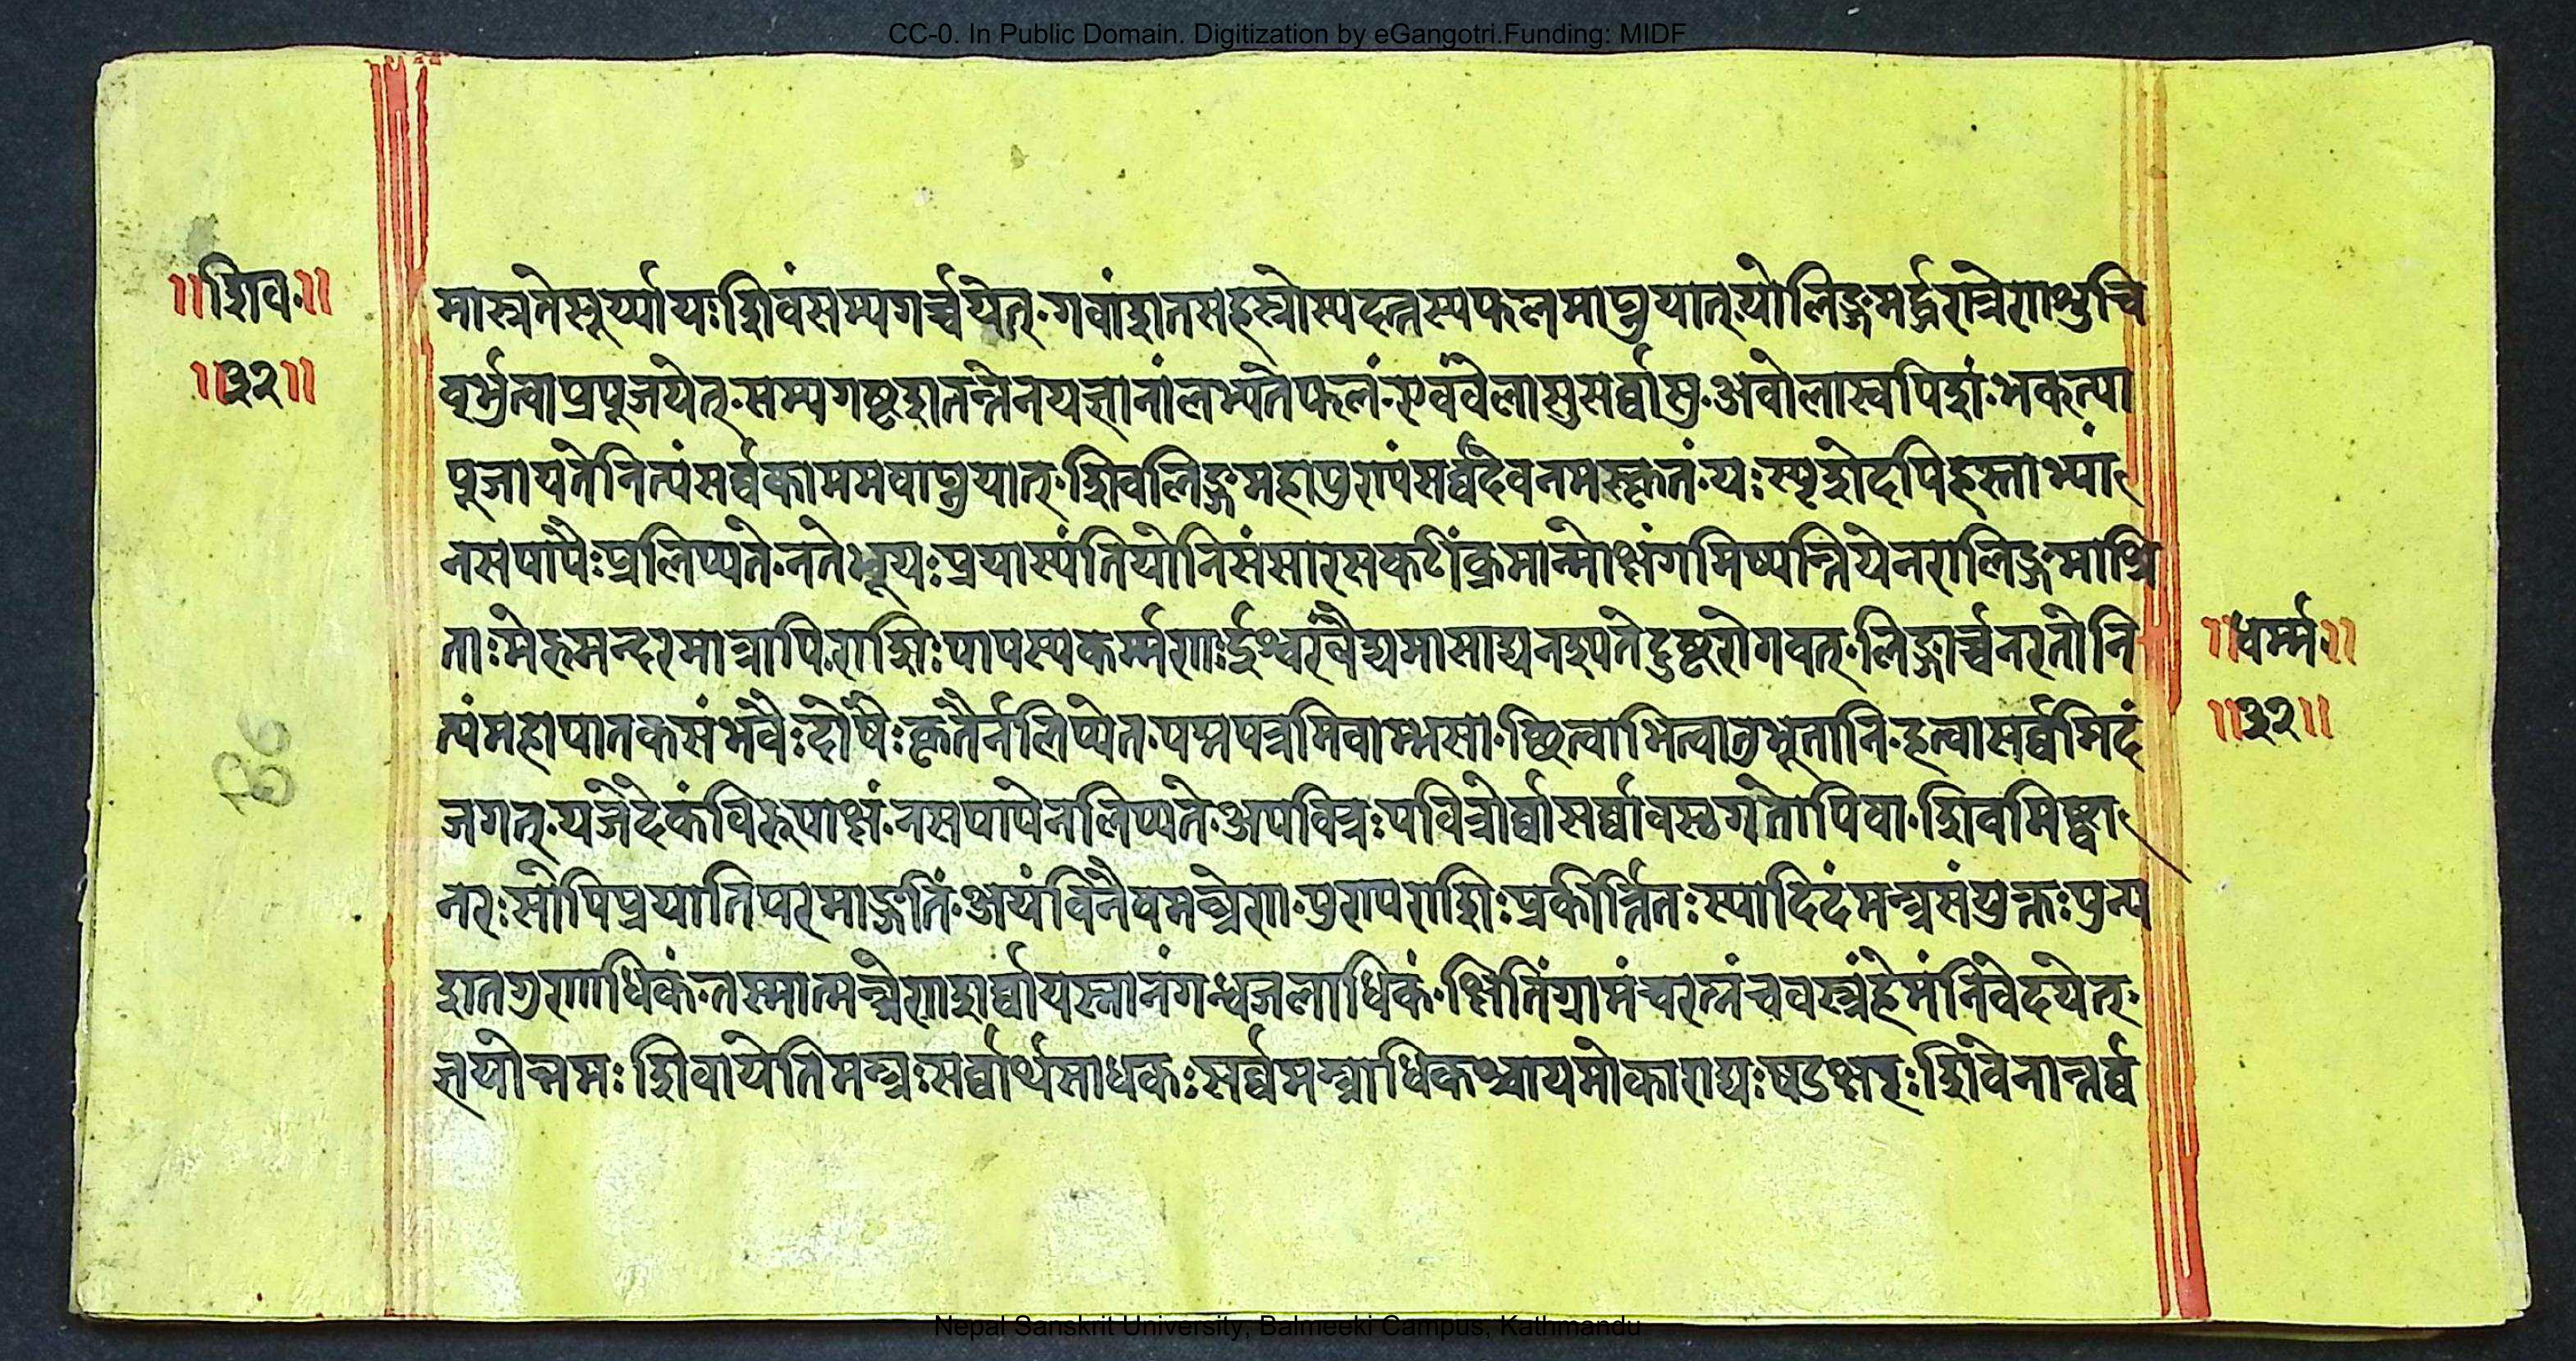 CC-0. In Public Domain. Digitization by eGangotri.Funding: MIDF
॥शिव॰॥
॥३२॥
मास्त्रतेसूर्य्यायःशिवंसम्यगर्च्चयेत्॰गवांशतसहस्त्रोस्यदत्तस्यफलमाप्नुयात्॰योलिङ्गमर्द्धरात्रेणशुचि
वर्भुत्वाप्रपूजयेत्॰सम्यगष्टशतन्तेनयज्ञानांलभ्यतेफलं॰एवंवेलासुसर्व्वासु॰अवोलास्वपिशं॰भकत्या
पूजायतेनित्यंसर्व्वकाममवाप्नुयात्॰शिवलिङ्गमहापुण्यंसर्व्वदेवनमस्कृतं॰यःस्पृशेदपिहस्ताभ्यां
नसपापैःप्रलिप्यते॰नतेभूयःप्रयास्यंतियोनिसंसारसकटींक्रमान्मोक्षंगमिष्यन्तियेनरालिङ्गमाश्रि
ताःमेरुमन्दरमात्रापि॰राशिःपापस्यकर्म्मणःईश्वरंवैद्यमासाद्यनश्यतेदुष्टरोगवत्॰लिङ्गार्च्चनरतोनि
त्यंमहापातकसंभवैःदोषैःकृतैर्नलिप्येत॰पद्मपत्रमिवाम्भसा॰छित्वाभित्वातुभूतानि॰हत्वासर्व्वमिदं
जगत्॰यजेदेकंविरूपाक्षं॰नसपापेनलिप्यते॰अपवित्रःपवित्रोर्व्वासर्व्वावस्छगतोपिवा॰शिवमिष्ट्वा
नरःसोपिप्रयातिपरमाङ्गतिं॰अयंविनैवमन्त्रेण॰पुण्यराशिःप्रकीर्त्तितःस्यादिदंमन्त्रसंयुक्तःपुन्य
शतगुणाधिकं॰तस्मात्मन्त्रेणशर्व्वायस्नानंगन्धजलाधिकं॰क्षितिंग्रामंचरत्नंचवस्त्रंहेमंनिवेदयेत्॰
ज्ञयोन्नमःशिवायेतिमन्त्रःसर्व्वार्थसाधकःसर्व्वमन्त्राधिकश्चायमोकाराद्यःषडक्षरःशिवेनान्तर्व्व
॥धर्म्म॰॥
॥३२॥
Nepal Sanskrit University, Balmeeki Campus, Kathmandu